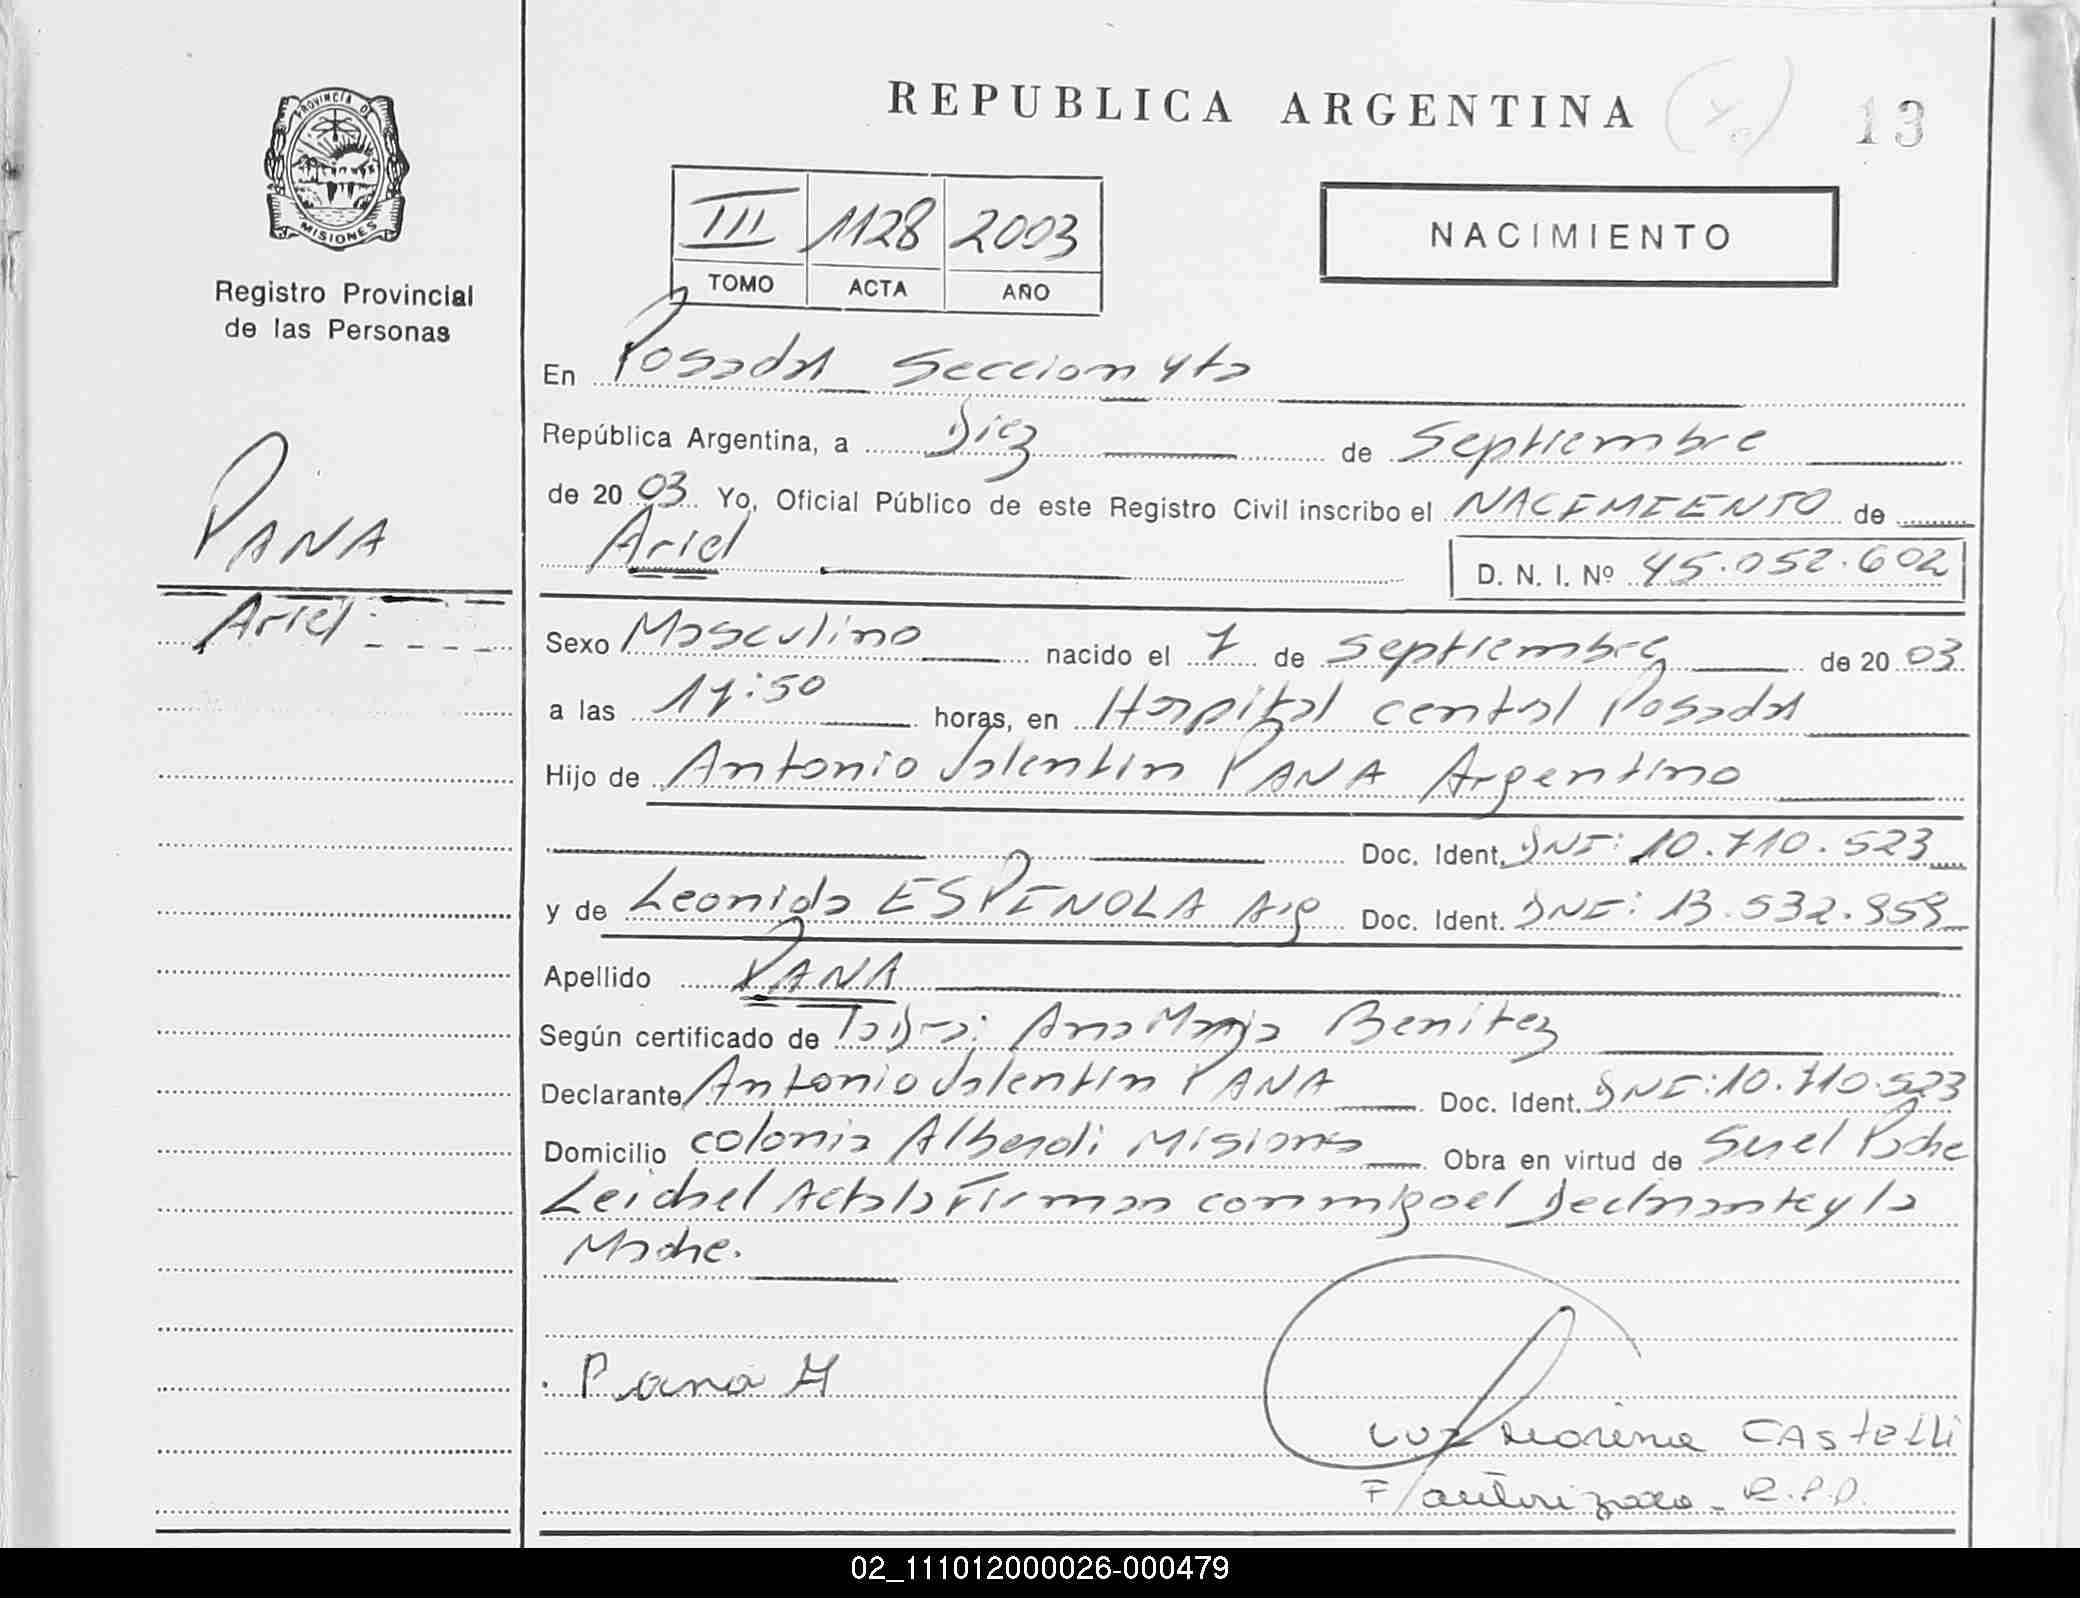 PROVINCIA DE
MISIONES
Registro Provincial
de las Personas
REPUBLICA ARGENTINA
13
III 1128 2003
TOMO ACTA AÑO
NACIMIENTO
En Posadas Seccion 4ta
República Argentina, a Diez de Septiembre
de 20 03 Yo, Oficial Público de este Registro Civil inscribo el NACIMIENTO de
Ariel D. N. I. Nº 45.052.602
PANA
Ariel
Sexo Masculino nacido el 7 de Septiembre de 20 03
a las 17:50 horas, en Hospital central Posadas
Hijo de Antonio Valentin PANA Argentino
Doc. Ident. DNI: 10.710.523
y de Leonida ESPINOLA Arg Doc. Ident. DNI: 13.532.959
Apellido PANA
Según certificado de Ana Maria Benitez
Declarante Antonio Valentin PANA Doc. Ident. DNI: 10.710.523
Domicilio colonia Alberdi Misiones Obra en virtud de Ser el Padre
Leida el Acta la Firman conmigo el Declarante y la
Madre.
Pana A
Luz Morena CAStelli
F/autorizada R.P.P.
02_111012000026-000479